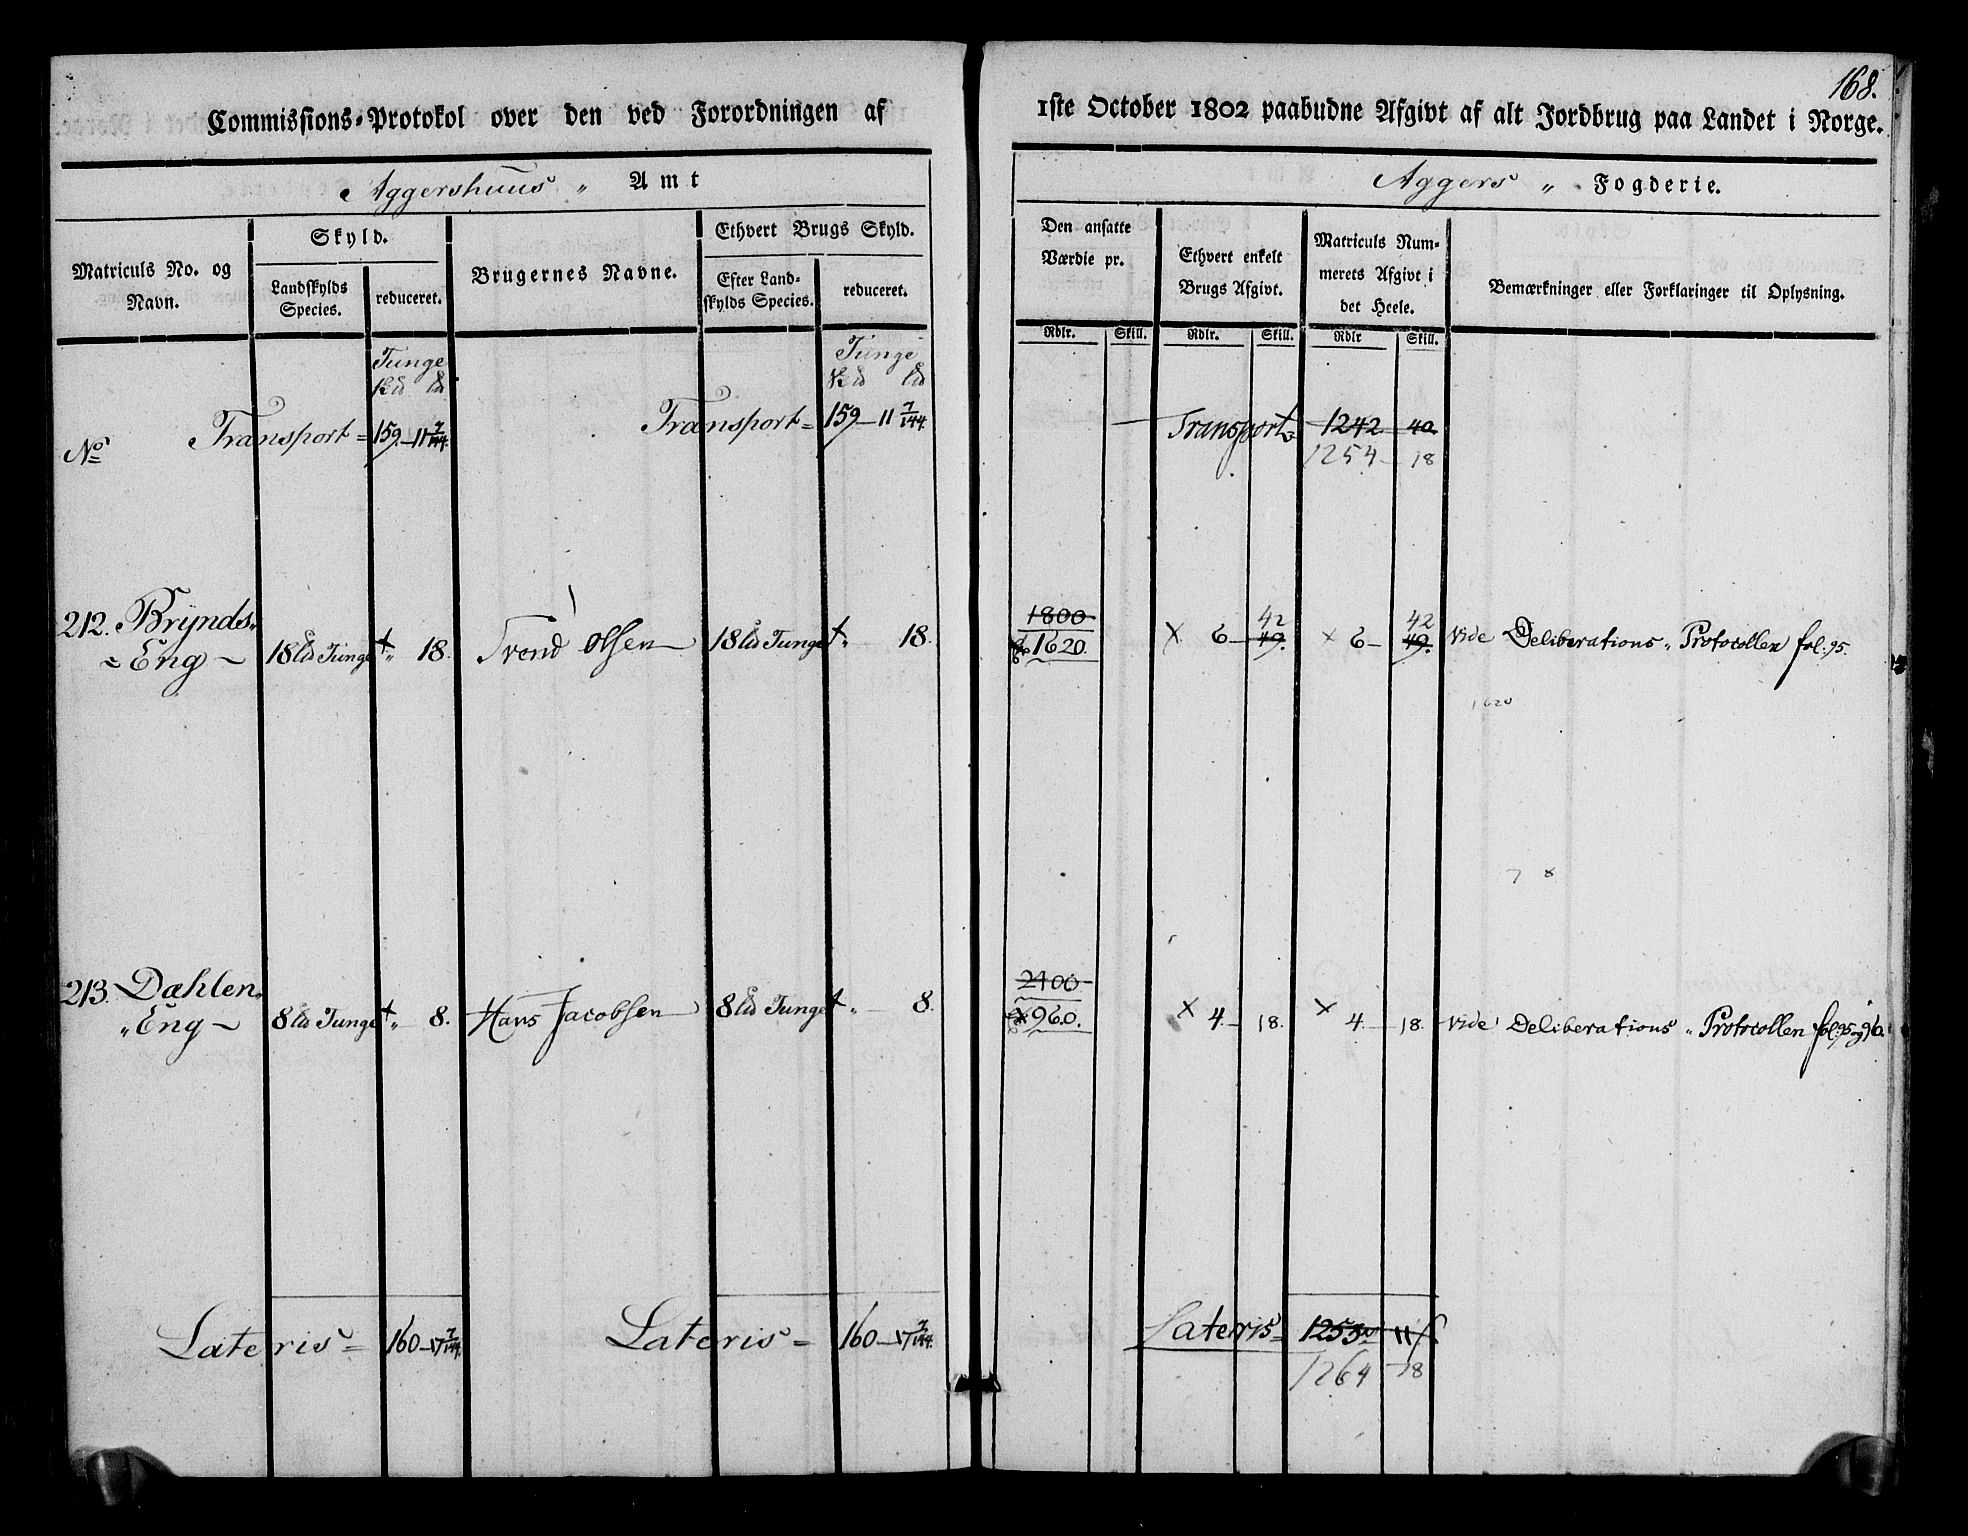 168.
Commissions-Protokol over den ved Forordningen af 1ste October 1802 paabudne Afgivt af alt Jordbrug paa Landet i Norge.
Aggershuus „ Amt
Aggers „ Fogderie.
Matriculs No. og Navn.
Skyld.
Landskylds Species.
reduceret.
Brugernes Navne.
Ethvert Brugs Skyld.
Efter Landskylds Species.
reduceret.
Den ansatte Værdie pr.
Ethvert enkelt Brugs Afgivt.
Matriculs Nummerets Afgivt i det Heele.
Bemærkninger eller Forklaringer til Oplysning.
Rdlr. Skill. Rdlr. Skill. Rdlr Skill.
Tunge Tunge
No
Transport = 159 — 11 7/144 Transport = 159 — 11 7/144 Transport = 1242 40
1254 — 18
212. Brÿnds„
Eng — 18 Tunge „ 18. Trond Olsen 18 Tunge „ 18.
1800
1620. × 6 — 49. 42 × 6 — 49. 42 vide Deliberations„ Protocollen fol: 95.
1620
7 8
213. Dæhlen„
„Eng — 8 Tunge „ 8. Hans Jacobsen 8 Tunge „ 8.
2400
960. × 4 — 18. × 4 — 18. vide Deliberations „ Protocollen fol: 95 og 96.
Lateris = 160 — 17 7/144. Lateris = 160 — 17 7/144. Lateris = 1253 11
1264 — 78